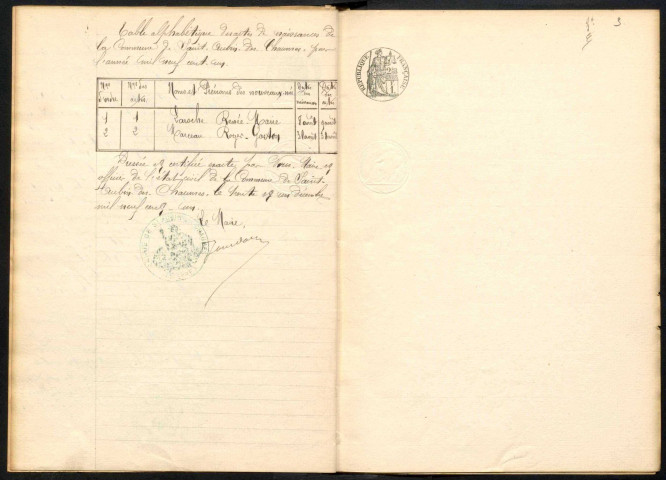 Table alphabétique des actes de naissances de
la Commune de Saint-Aubin-des-Chaumes, pour
l'année mil neuf cent un.
Nos d'ordre Nos des actes Noms et Prénoms des nouveaux-nés Date Date
1 1 Renée-Marie 8 août
2 2 Marceau Roger-Gaston 31 août
Dressée et certifiée exacte par Nous, Maire et
officier de l'état-civil de la Commune de Saint-
Aubin-des-Chaumes, le trente et un Décembre
mil neuf cent un.
Le Maire,
REPUBLIQUE FRANÇAISE
3